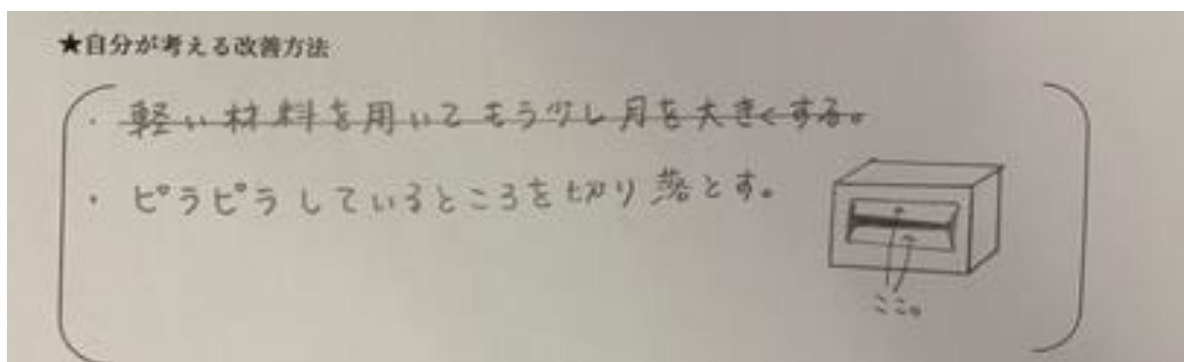 ★自分が考える改善方法
・軽い材料を用いてもう少し月を大きくする。
・ピラピラしているところを切り落とす。
ここ。